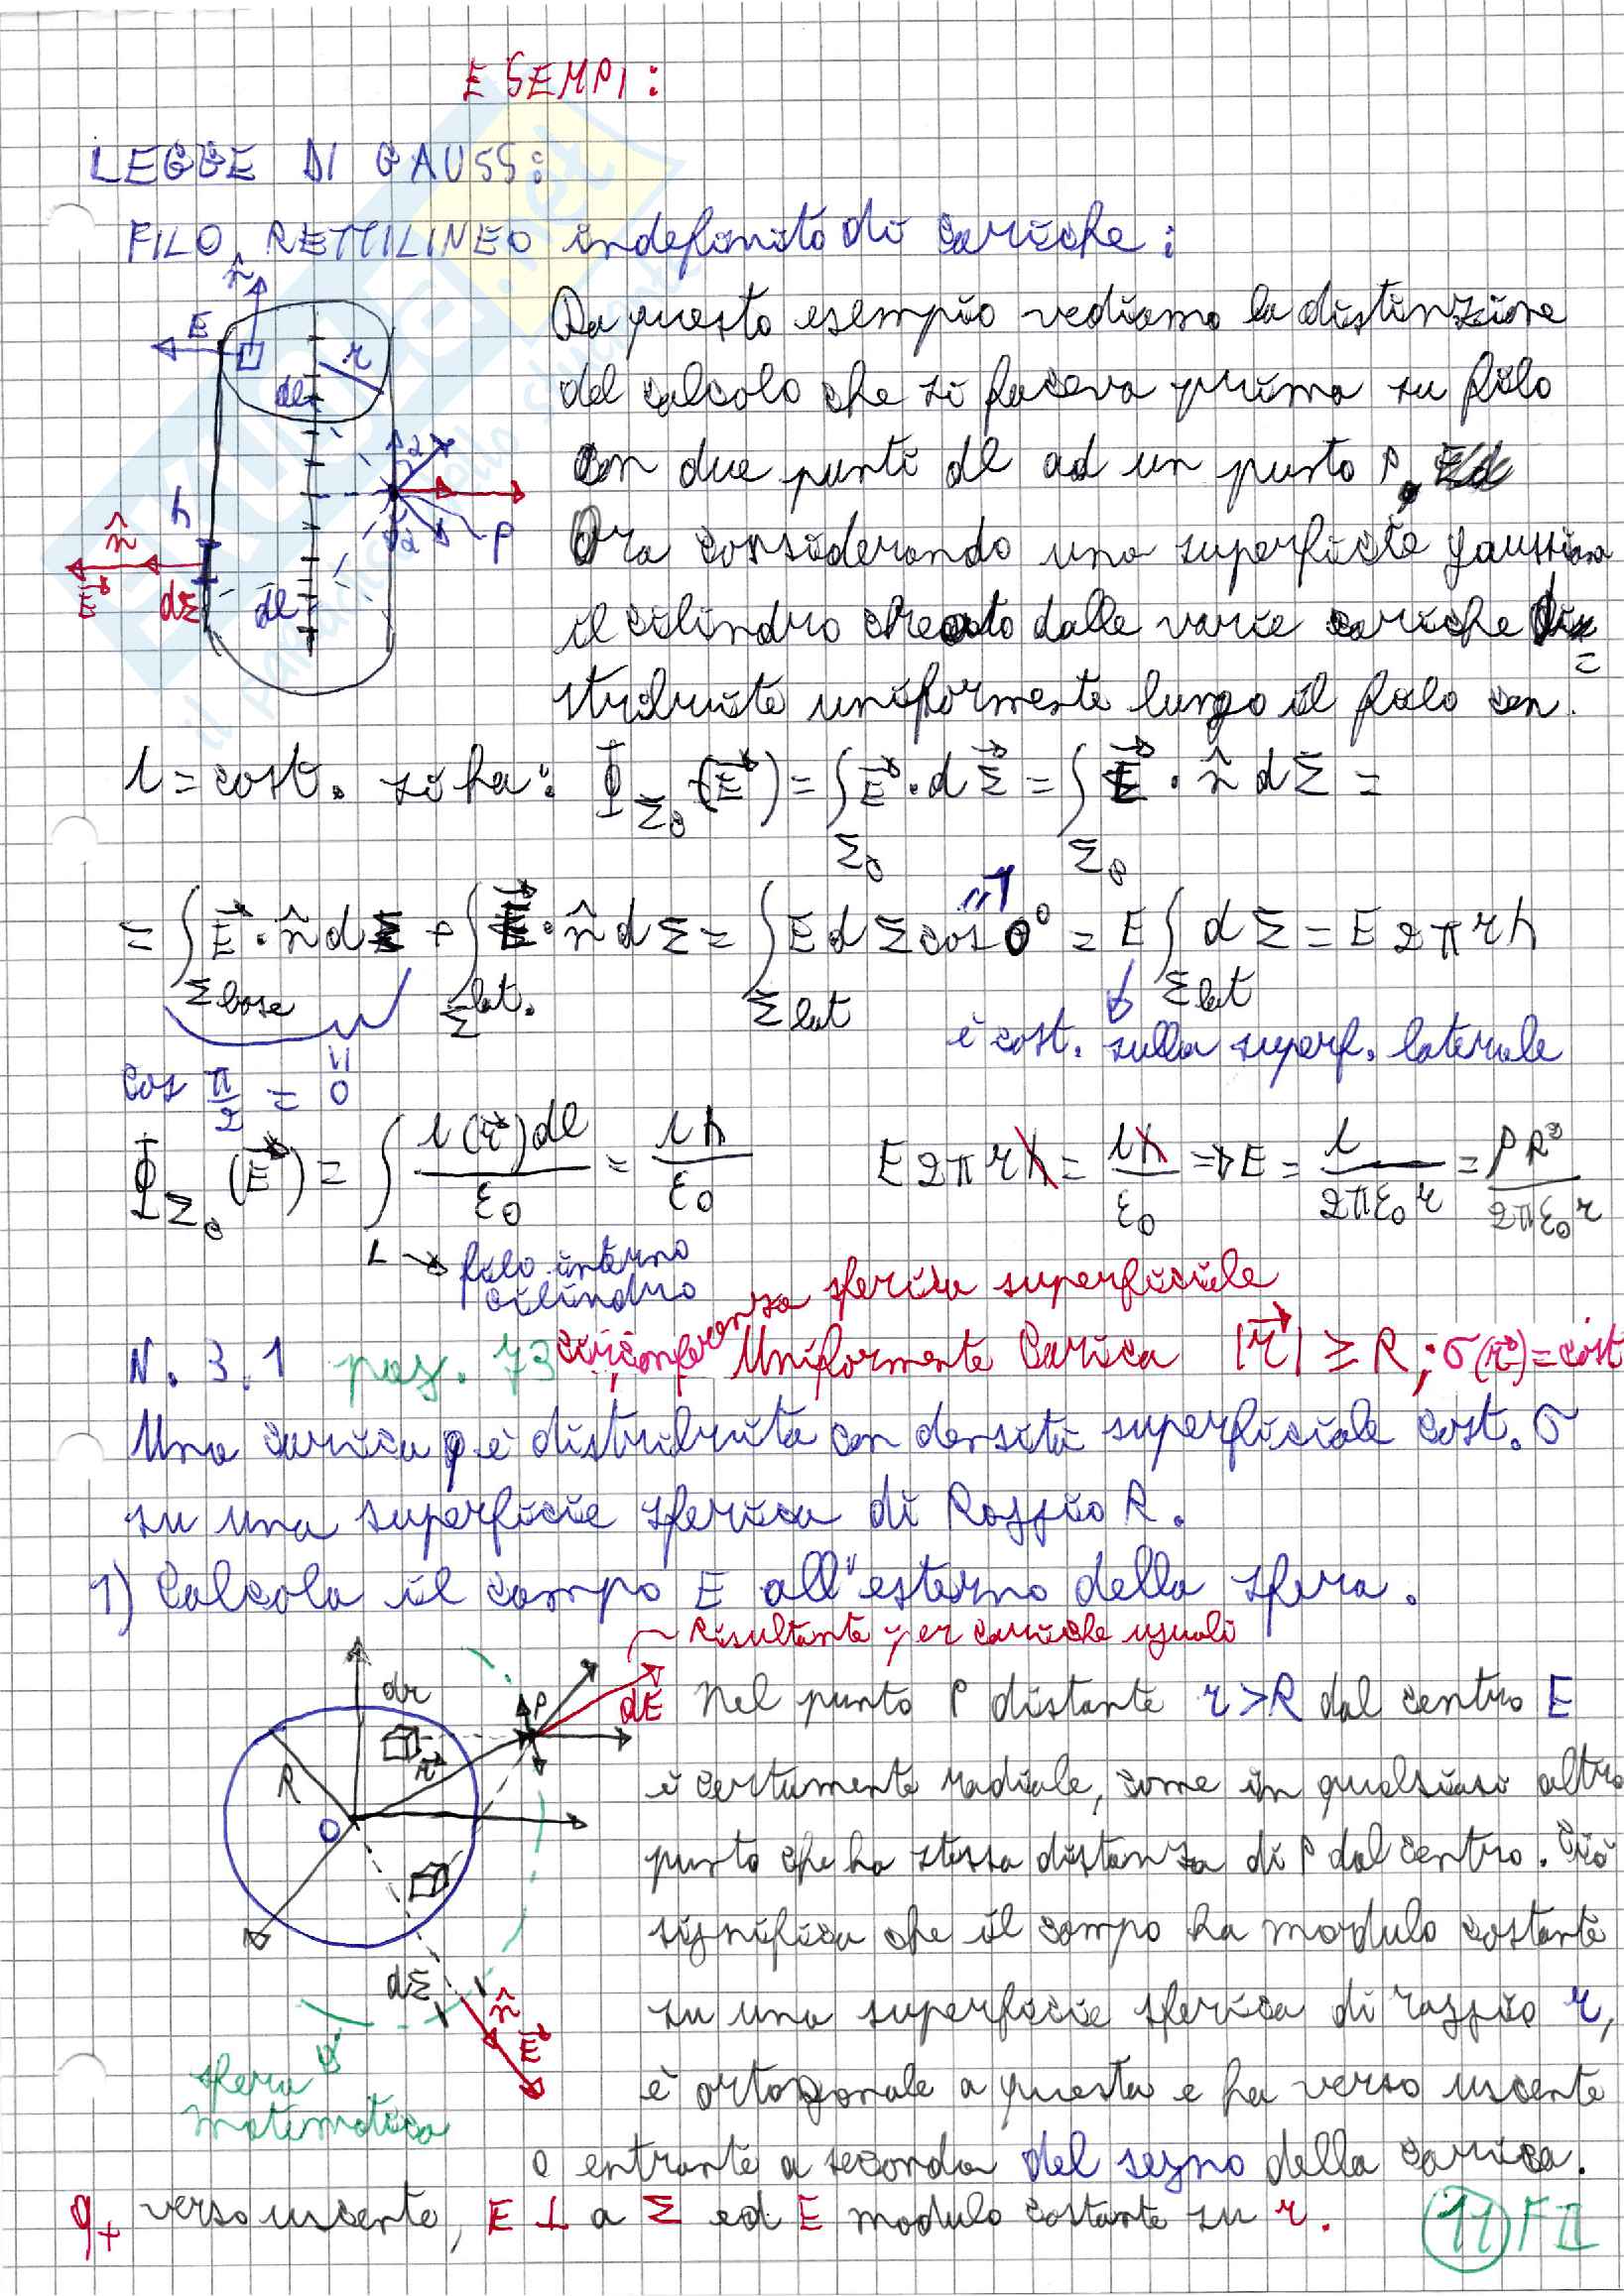 ESEMPI:
LEGGE DI GAUSS:
FILO RETTILINEO indefinito di cariche:
Da questo esempio vediamo la distinzione
del calcolo che si faceva prima su filo
con due punti dl ad un punto P.
Ora considerando una superficie gaussiana
il cilindro creato dalle varie cariche di=
stribuite uniformemente lungo il filo con
n̂
E
r
dl
α
α
P
h
n̂
E⃗
dΣ
dl
λ = cost. si ha: Φ_Σ₀ (E⃗) = ∫_Σ₀ E⃗ · dΣ⃗ = ∫_Σ₀ E⃗ · n̂ dΣ =
= ∫_Σbase E⃗ · n̂ dΣ + ∫_Σlat. E⃗ · n̂ dΣ = ∫_Σlat E dΣ cos 0° = E ∫_Σlat dΣ = E 2πrh
"1
è cost. sulla superf. laterale
cos π/2 = 0
Φ_Σ₀ (E⃗) = ∫_L λ(r⃗)dl/ε₀ = λh/ε₀ E2πrh = λh/ε₀ ⇒ E = λ/2πε₀r = ρR²/2πε₀r
L → filo interno
cilindro
N. 3.1 pag. 73 circonferenza sferica superficiale
Uniformemente Carica |r⃗| ≥ R; σ(r⃗) = cost
Una carica q è distribuita con densità superficiale cost. σ
su una superficie sferica di Raggio R.
1) Calcola il campo E all'esterno della sfera.
Risultante per cariche uguali
dE
dr
P
R
r⃗
O
dΣ
n̂
E⃗
sfera
matematica
Nel punto P distante r>R dal centro E
è certamente radiale, come in qualsiasi altro
punto che ha stessa distanza di P dal centro. Ciò
significa che il campo ha modulo costante
su una superficie sferica di raggio r,
è ortogonale a questa e ha verso uscente
o entrante a seconda del segno della carica.
q+ verso uscente, E ⊥ a Σ ed E modulo costante su r.
11 FII